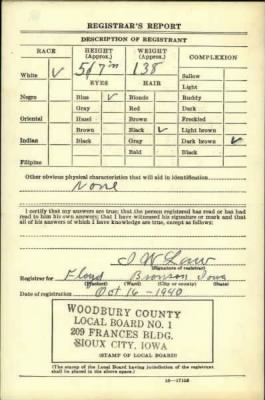 REGISTRAR'S REPORT
DESCRIPTION OF REGISTRANT
RACE HEIGHT (Approx.) WEIGHT (Approx.) COMPLEXION
White ✓ 5/7 in 138 Sallow
EYES HAIR Light
Negro Blue ✓ Blonde Ruddy
Gray Red Dark
Oriental Hazel Brown Freckled
Brown Black ✓ Light brown
Indian Black Gray Dark brown ✓
Bald Black
Filipino
Other obvious physical characteristics that will aid in identification
None
I certify that my answers are true; that the person registered has read or has had
read to him his own answers; that I have witnessed his signature or mark and that
all of his answers of which I have knowledge are true, except as follows:
J W Law
(Signature of registrar)
Registrar for Floyd Bronson Iowa
(Precinct) (Ward) (City or county) (State)
Date of registration Oct 16-1940
WOODBURY COUNTY
LOCAL BOARD NO. 1
209 FRANCES BLDG.
SIOUX CITY, IOWA
(STAMP OF LOCAL BOARD)
(The stamp of the Local Board having jurisdiction of the registrant
shall be placed in the above space.)